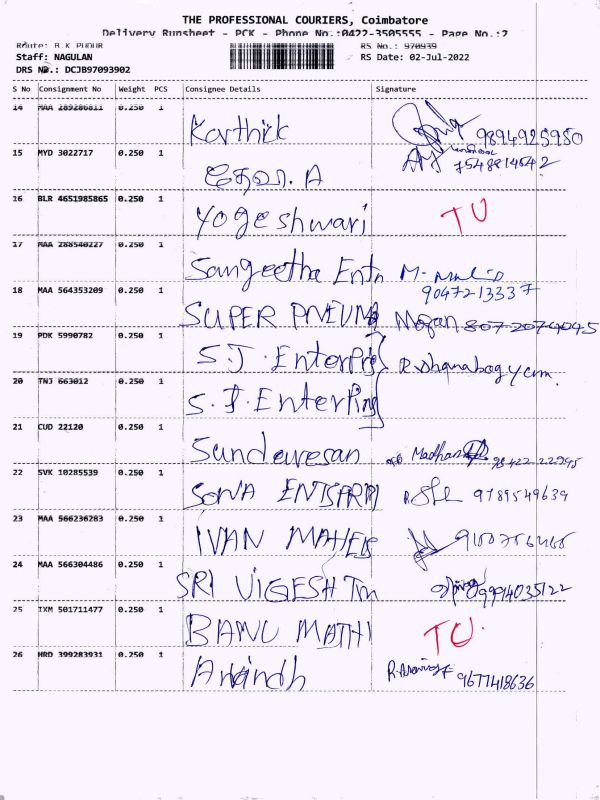 THE PROFESSIONAL COURIERS, Coimbatore
Delivery Runsheet - PCK - Phone No.:0422-3505555 - Page No.:2
Route: B.K PUDUR RS No.: 970939
Staff: NAGULAN RS Date: 02-Jul-2022
DRS No.: DCJB97093902
S No Consignment No Weight PCS Consignee Details Signature
14 MAA 289286811 0.250 1 Karthick 9894925950
15 MYD 3022717 0.250 1 தேவா. A 7548814542
16 BLR 4651985865 0.250 1 Yogeshwari TU
17 MAA 288540227 0.250 1 Sangeetha Entn M.
9047213337
18 MAA 564353209 0.250 1 SUPER PNEUMA Mohan 8072074045
19 PDK 5990782 0.250 1 S.J. Enterpris
20 TNJ 663012 0.250 1 S.J. Enterpris
21 CUD 22120 0.250 1 Sundaresan Madhan 98422 22595
22 SVK 10285539 0.250 1 SONA ENTSPRI 9789549639
23 MAA 566236283 0.250 1 IVAN MAHER
24 MAA 566304486 0.250 1 SRI VIGESH Tm 9994035122
25 IXM 501711477 0.250 1 BANU MATHI TU.
26 HRD 399283931 0.250 1 Anandh 9677418636